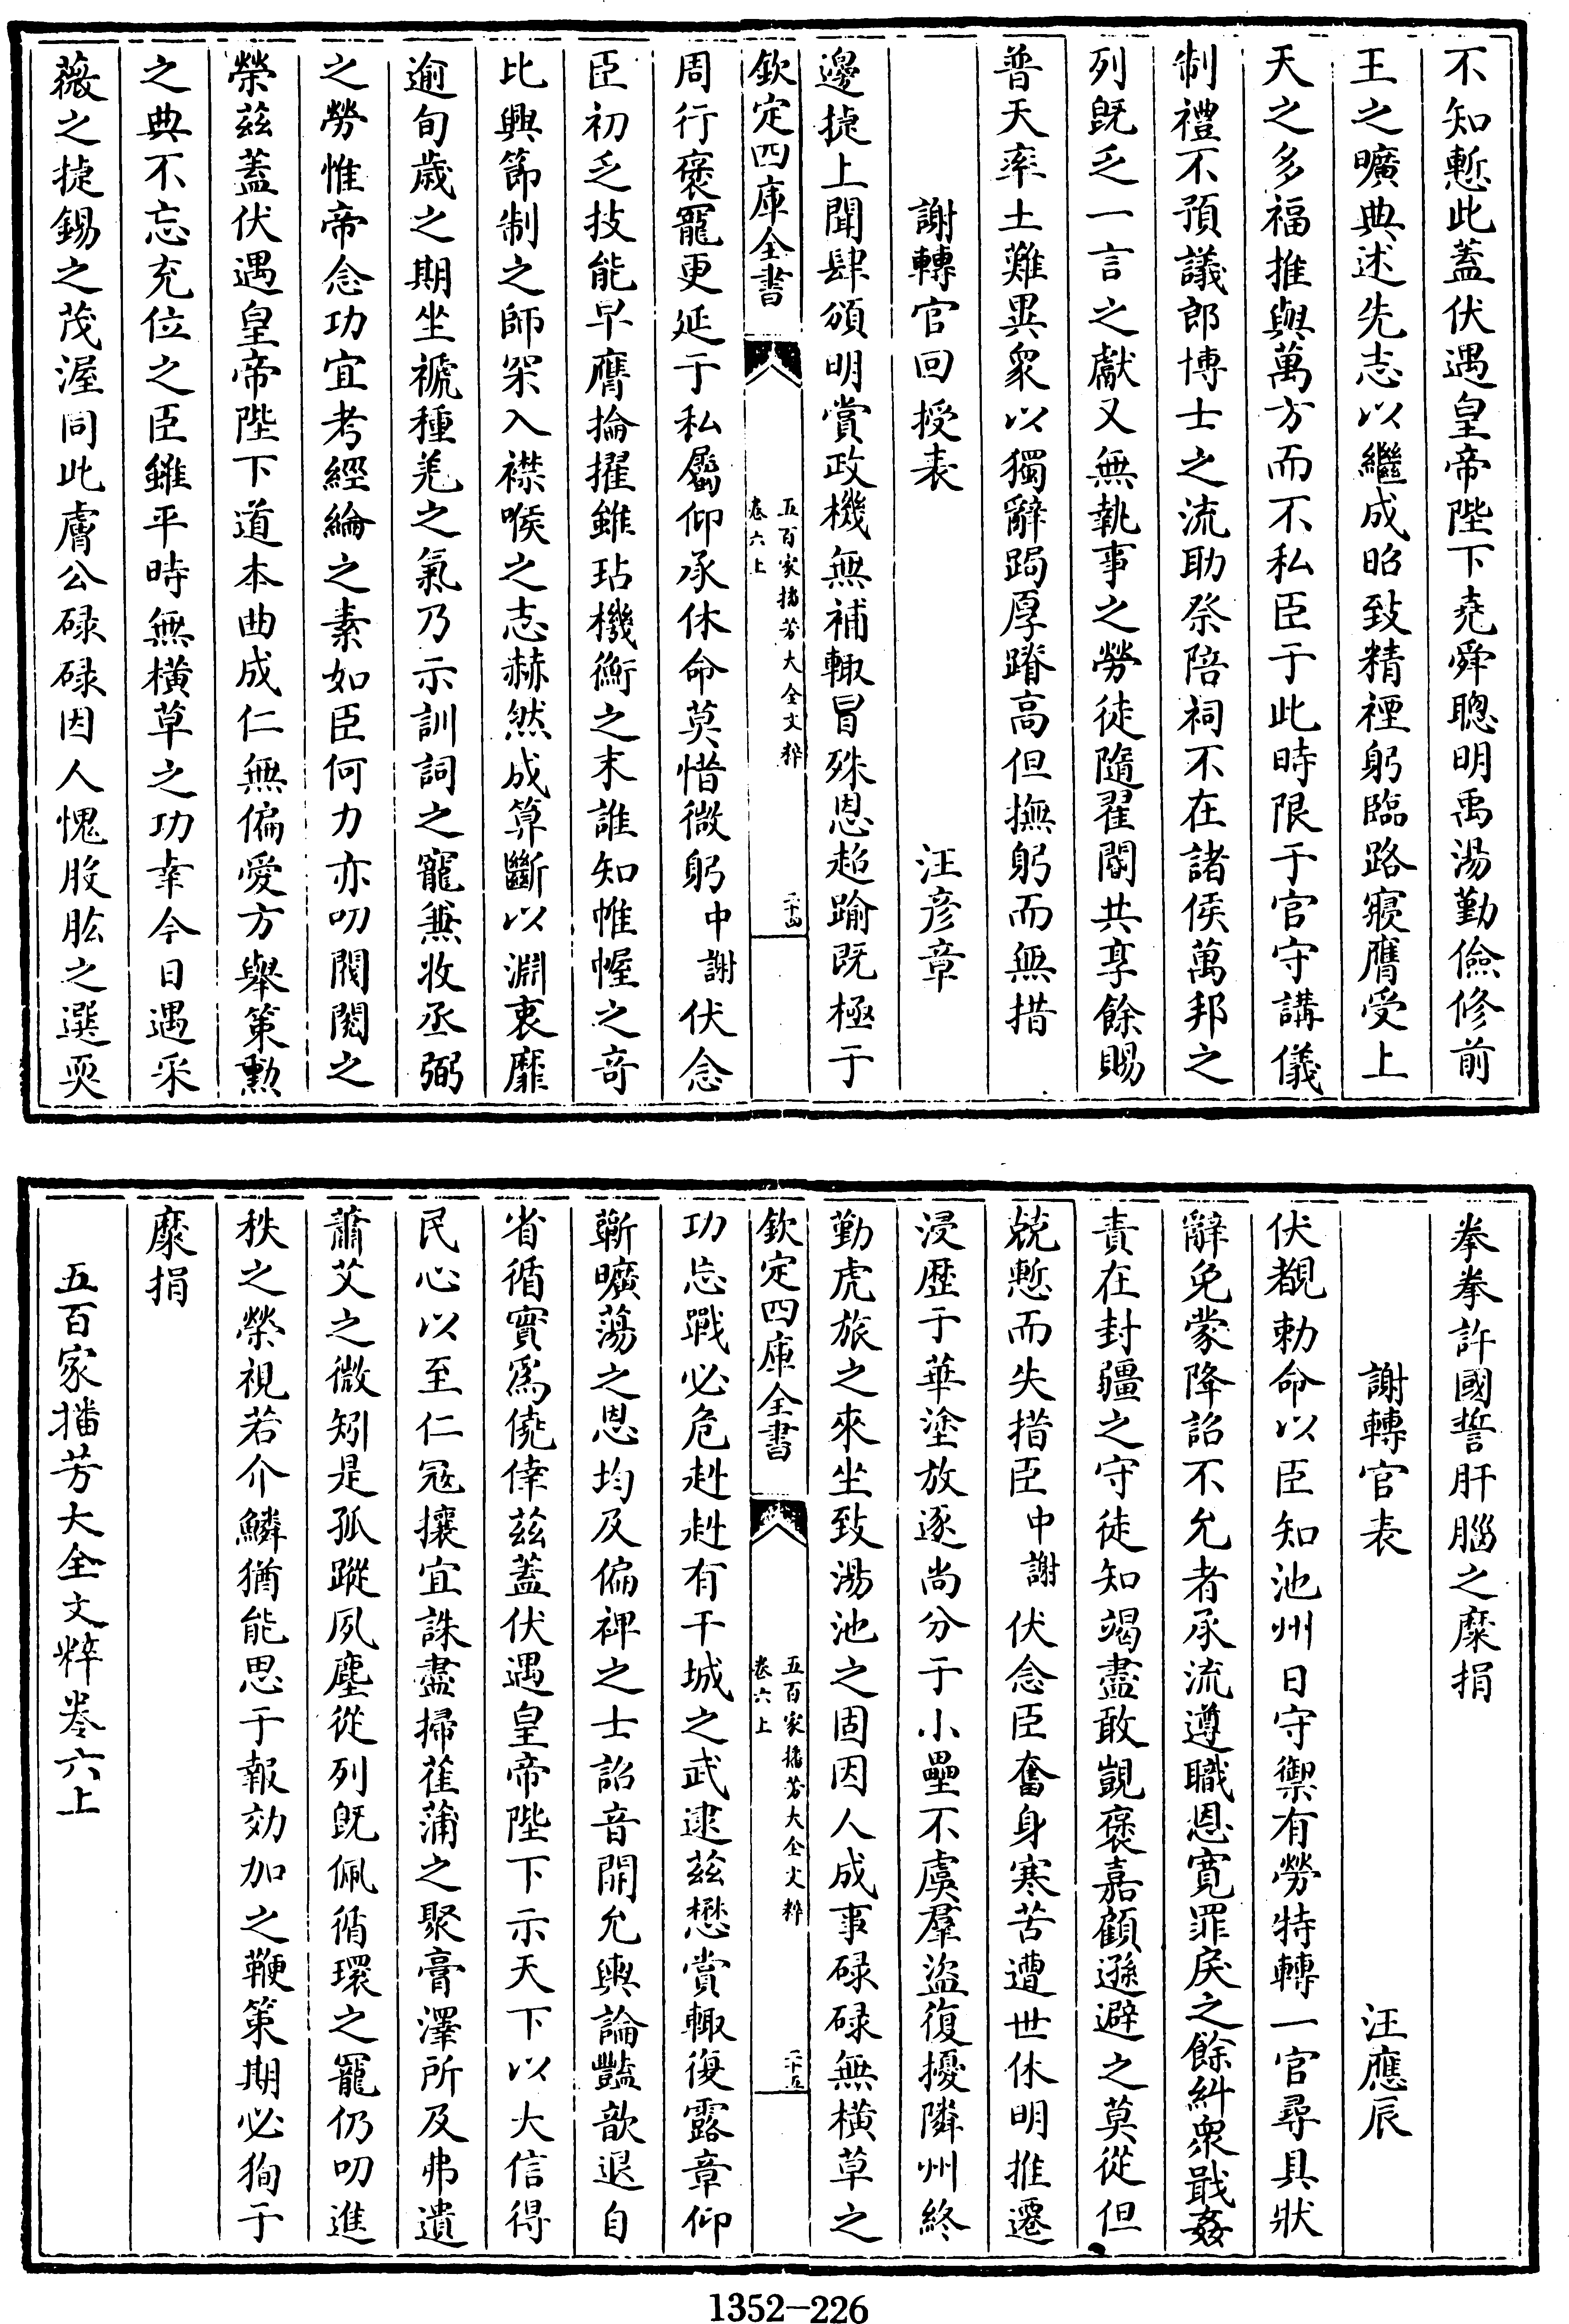 不知慙此蓋伏遇皇帝陛下堯舜聰明禹湯勤儉修前
王之曠典述先志以繼成昭致精禋躬臨路寢膺受上
天之多福推與萬方而不私臣于此時限于官守講儀
制禮不預議郎博士之流助祭陪祠不在諸侯萬邦之
列旣乏一言之獻又無執事之勞徒隨翟閽共享餘賜
普天率土難異衆以獨辭跼厚蹐高但撫躬而無措
謝轉官回授表 汪彥章
邊捷上聞肆頒明賞政機無補輙冒殊恩超踰既極于
欽定四庫全書
五百家播芳大全文粹
卷六上
二十四
周行褒寵更延于私屬仰承休命莫惜微躬中謝伏念
臣初乏技能早膺掄擢雖玷機衡之末誰知帷幄之奇
比興節制之師罙入襟喉之志赫然成算斷以淵衷靡
逾旬歲之期坐褫種羌之氣乃示訓詞之寵兼收丞弼
之勞惟帝念功宜考經綸之素如臣何力亦叨閥閱之
榮茲蓋伏遇皇帝陛下道本曲成仁無偏愛方舉策勲
之典不忘充位之臣雖平時無橫草之功幸今日遇采
薇之捷錫之茂渥同此膚公碌碌因人愧股肱之選耎
拳拳許國誓肝腦之縻捐
謝轉官表 汪應辰
伏覩勅命以臣知池州日守禦有勞特轉一官尋具狀
辭免蒙降詔不允者承流遵職恩寛罪戾之餘糾衆戢姦
責在封疆之守徒知竭盡敢覬褒嘉顧遜避之莫從但
兢慙而失措臣中謝伏念臣奮身寒苦遭世休明推遷
浸歷于華塗放逐尚分于小壘不虞羣盜復擾隣州終
勤虎旅之來坐致湯池之固因人成事碌碌無橫草之
欽定四庫全書
五百家播芳大全文粹
卷六上
二十五
功忘戰必危赳赳有干城之武逮茲懋賞輙復露章仰
蘄曠蕩之恩均及偏裨之士詔音開允輿論豔歆退自
省循實爲僥倖茲蓋伏遇皇帝陛下示天下以大信得
民心以至仁冦攘宜誅盡掃萑蒲之聚膏澤所及弗遺
蕭艾之微矧是孤蹤夙塵從列旣佩循環之寵仍叨進
秩之榮視若介鱗猶能思于報効加之鞭策期必狥于
糜捐
五百家播芳大全文粹卷六上
1352-226